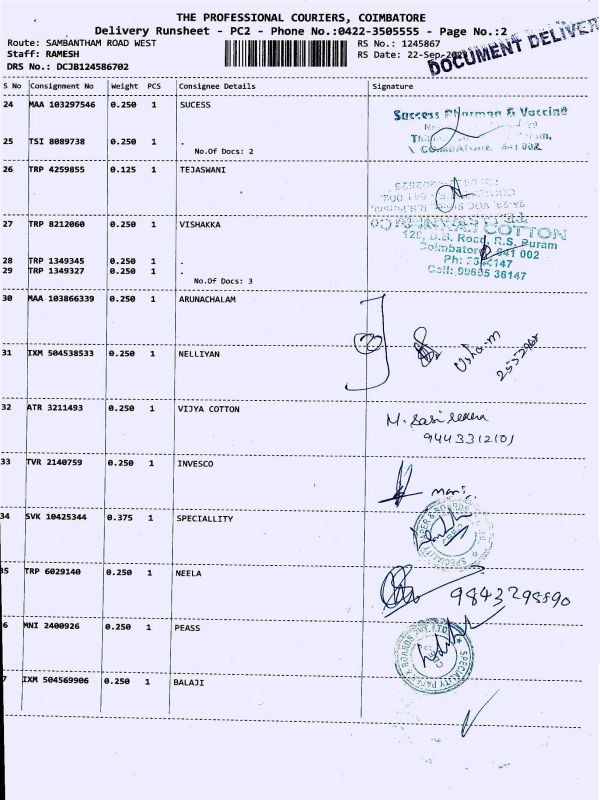 THE PROFESSIONAL COURIERS, COIMBATORE
Delivery Runsheet - PC2 - Phone No.:0422-3505555 - Page No.:2
Route: SAMBANTHAM ROAD WEST
RS No.: 1245867
Staff: RAMESH
RS Date: 22-Sep-
DRS No.: DCJB124586702
DOCUMENT DELIVER
S No Consignment No Weight PCS Consignee Details Signature
24 MAA 103297546 0.250 1 SUCESS
Success Pharma & Vaccine
25 TSI 8089738 0.250 1 .
No.Of Docs: 2
641 002
26 TRP 4259855 0.125 1 TEJASWANI
27 TRP 8212060 0.250 1 VISHAKKA
COTTON
129, D.B. Road, R.S. Puram
Coimbatore 641 002
28 TRP 1349345 0.250 1 .
29 TRP 1349327 0.250 1 .
No.Of Docs: 3
Cell: 99655 36147
30 MAA 103866339 0.250 1 ARUNACHALAM
31 IXM 504538533 0.250 1 NELLIYAN
32 ATR 3211493 0.250 1 VIJYA COTTON
9443312101
33 TVR 2140759 0.250 1 INVESCO
mani.
34 SVK 10425344 0.375 1 SPECIALLITY
35 TRP 6029140 0.250 1 NEELA
9843298590
6 MNI 2400926 0.250 1 PEASS
SPECIALITY PAPER & BOARDS PVT. LTD.
7 IXM 504569906 0.250 1 BALAJI